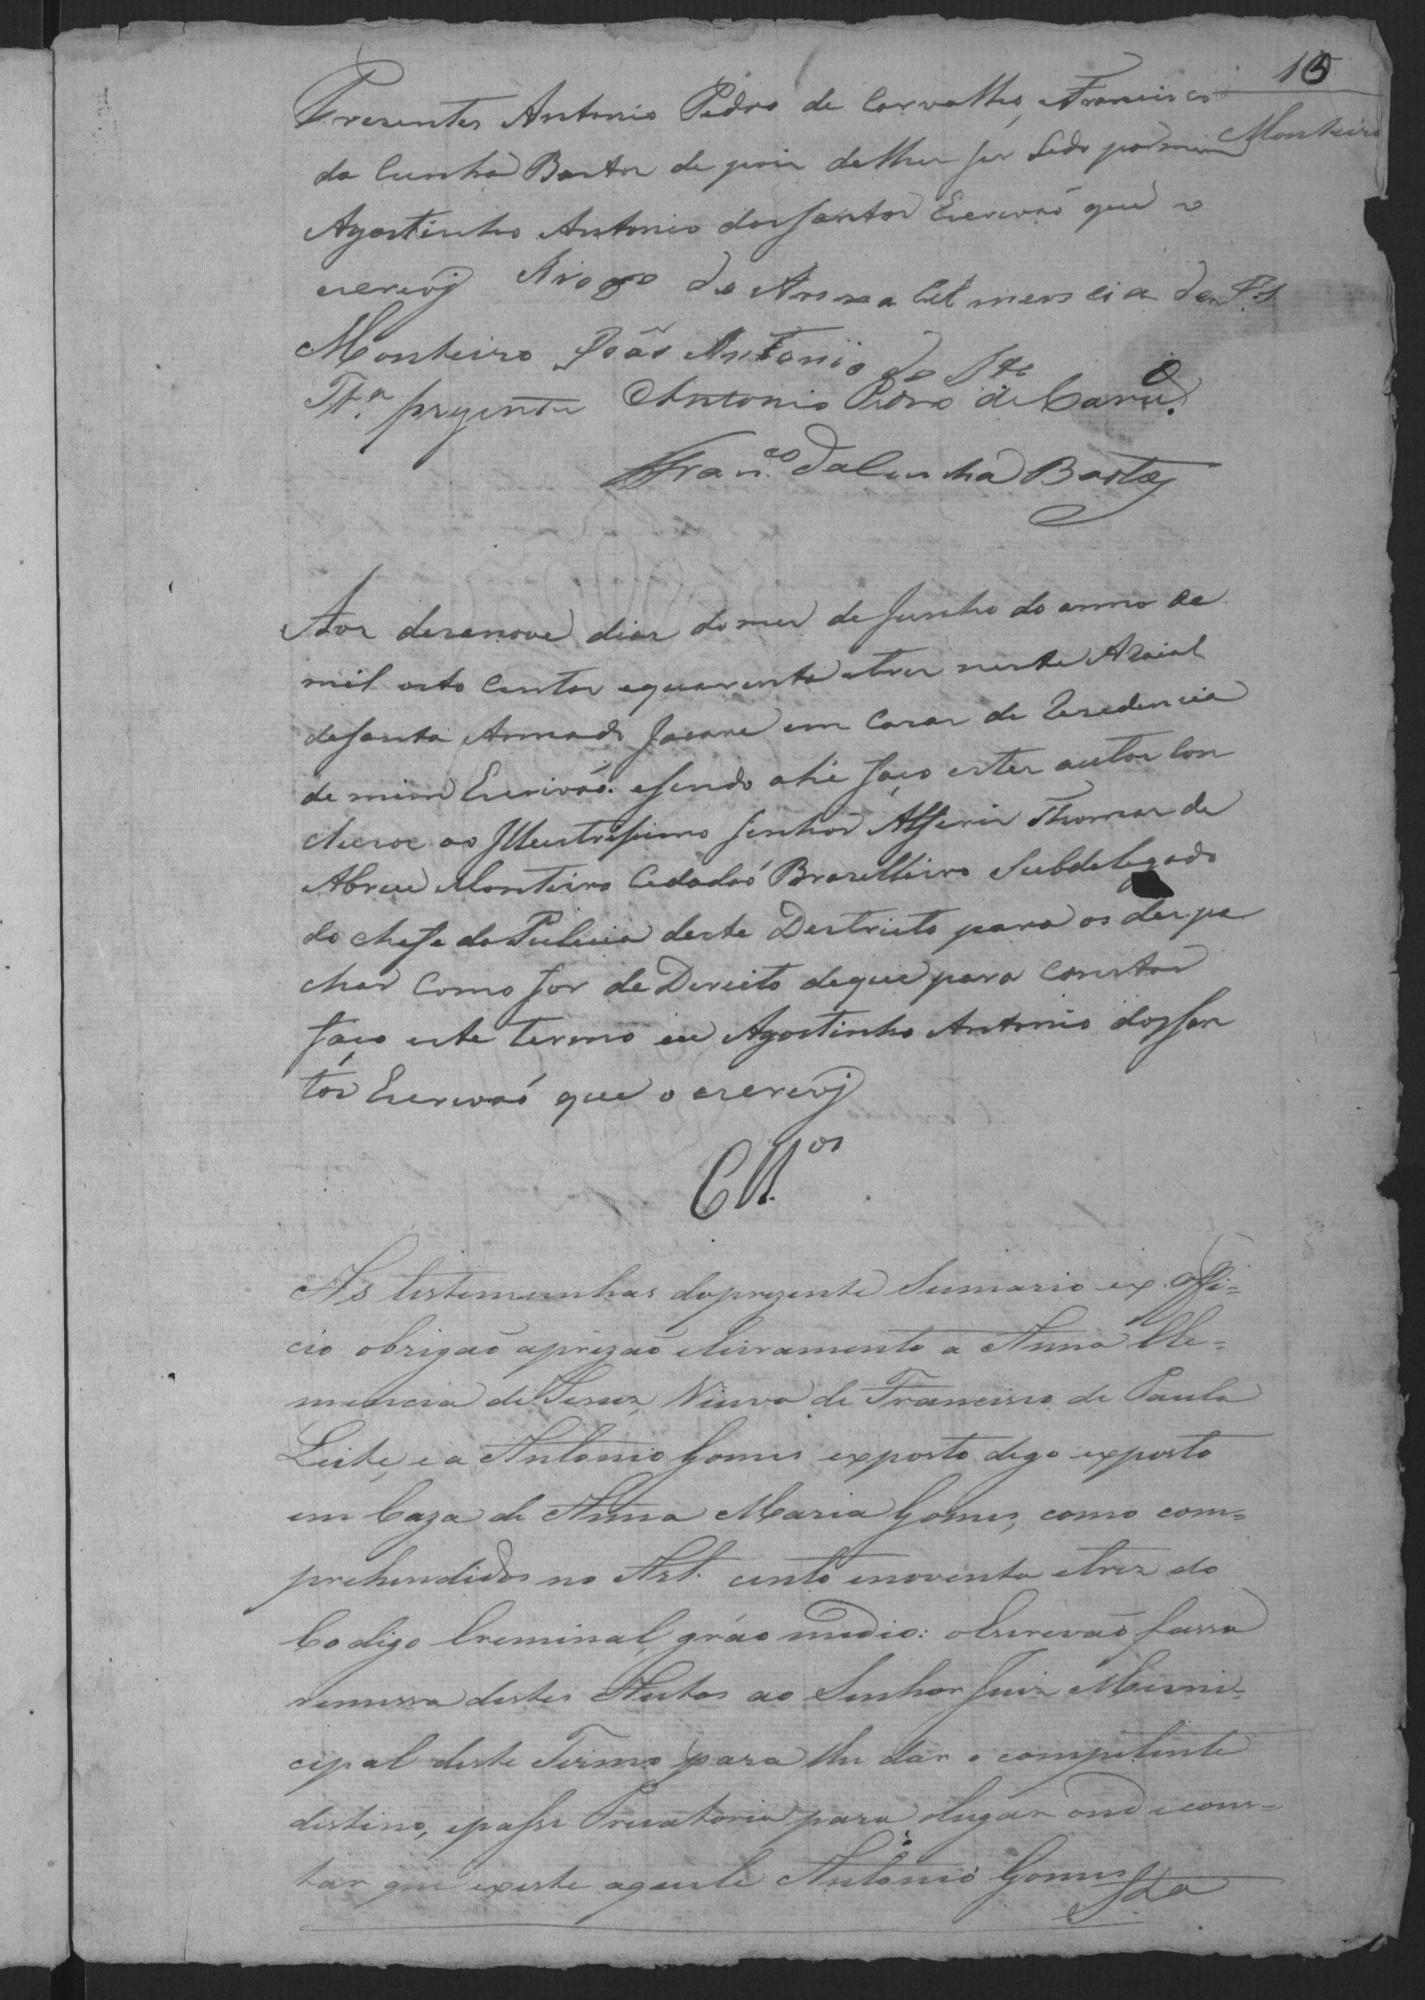 15
Monteiro
Prezentes Antonio Pedro de Carvalho, Francisco
da Cunha Bastos de pois delhes ser Lido por mim
Agostinho Antonio dos Santos Escrivaõ que o
escrevj Arogo de Anna Clemencia de
Monteiro João Antonio do
Tt.ª prezente Antonio Pedro de Carv.º
Fran.co da Cunha Bastos
Aos dezenove dias domes de Junho do anno de
mil oito centos equarenta etres neste Araial
deSanta Anna do Jacare em Cazas de Rezedencia
de mim Escrivaõ. esendo ahi faço estes autos Con
cluzos ao Illustrissimo Senhor Alferes Thomas de
Abreu Monteiro Cidadaõ Brazilleiro Subdelegado
do chefe da Pulicia deste Destricto para os despa
char como for de Dereito deque para constar
faço este termo eu Agostinho Antonio dosSan
tos Escrivaõ que o escrevj
Cll.os
As testemunhas doprezente Sumario ex officio
cio obrigaõ aprizaõ elivramento a Anna Cle=
mencia de Jesus, Viuva de Francisco de Paula
Leite, e a Antonio Gomes exposto digo exposto
em Caza de Anna Maria Gomes, como com=
prehendidos no Art. cento enoventa etrez do
Codigo Creminal, gráo medio: oEscrivaõ fassa
remessa destes Autos ao Senhor Juiz Muni=
cipal deste Termo para lhe dar o competente
distino, epasse Precatoria para olugar onde cons=
tar que existe aquele Antonio Gomes